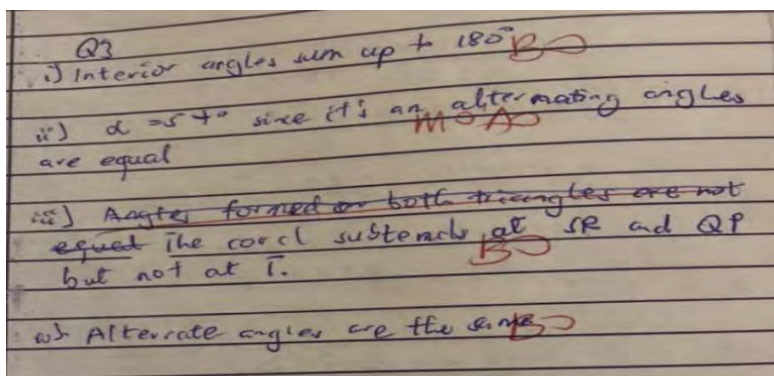 Q3
i) Interior angles sum up to 180° B0
ii) α = 57° since it's an alternating angles M0 A0
are equal
iii) Angles formed on both triangles are not
equal The cord subtends at SR and QP B0
but not at T.
iv) Alternate angles are the same B0